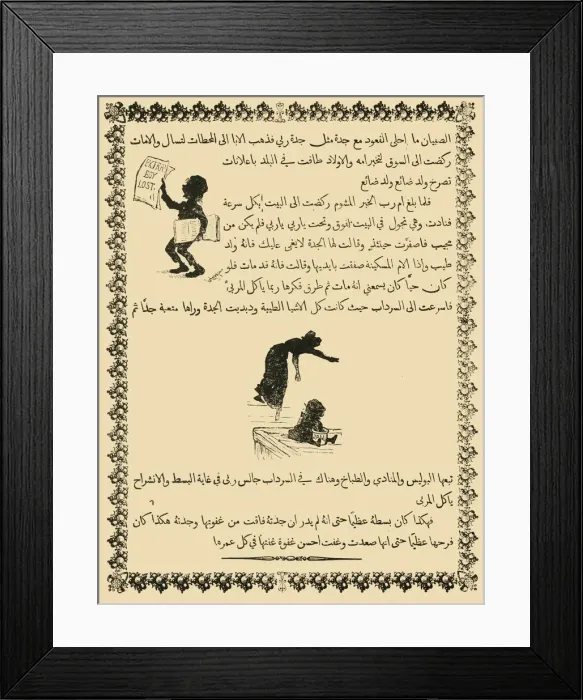 الصبيان ما احلى القعود مع جدة مثل جدة ربي فذهب الابا الى المحطات لتسال والامات
ركضت الى السوق لتخبر امه والاولاد طافت في البلد باعلانات
تصرخ ولد ضائع ولد ضائع
EXTRA
BOY
LOST
فلما بلغ ام رب الخبر المشوم ركضت الى البيت بكل سرعة
فنادت وهي تجول في البيت لفوق وتحت ياربي ياربي فلم يكن من
مجيب فاصفرّت حينئذ وقالت لها الجدة لايغمى عليك فانه ولد
طيب واذا الام المسكينة صفقت بايديها وقالت فانه قد مات فلو
كان حيًا كان يسمعني انه مات ثم طرق فكرها ربما ياكل المربى
فاسرعت الى السرداب حيث كانت كل الاشيا الطيبة ودبدبت الجدة وراها متعبة جدًا ثم
تبعها البوليس والمنادي والطباخ وهناك في السرداب جالس ربى في غاية البسط والانشراح
ياكل المربى
فهكذا كان بسطه عظيمًا حتى انه لم يدر ان جدته فاقت من غفوتها وجدته هكذا كان
فرحها عظيمًا حتى انها صعدت وغفت احسن غفوة غفتها في كل عمرها